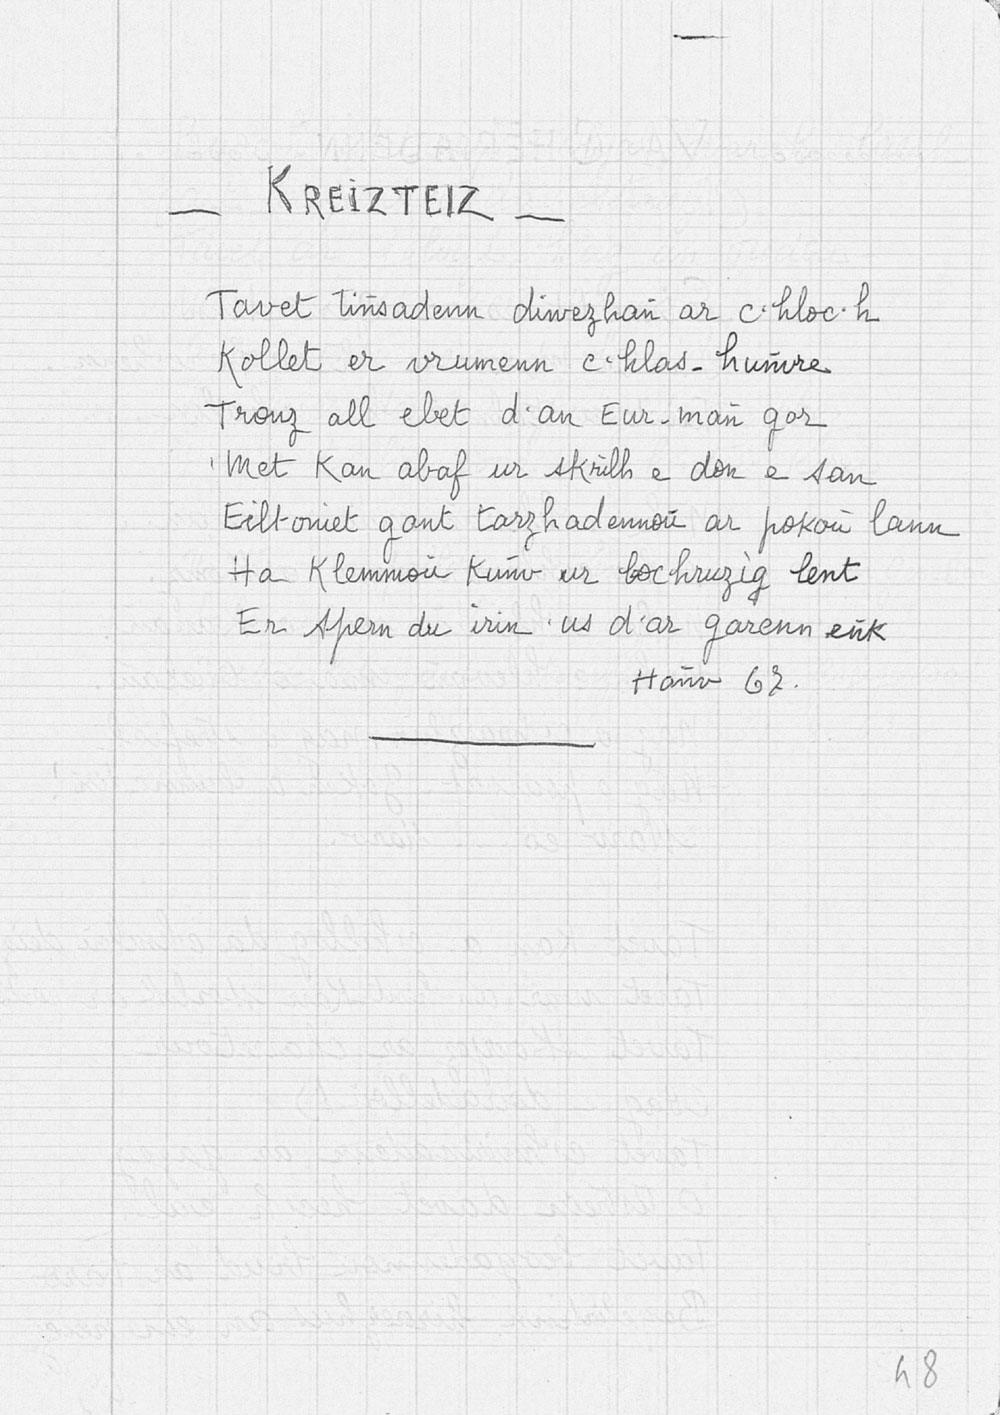 — KREIZTEIZ —
Tavet tiñsadenn diwezhañ ar c'hloc'h
Kollet er vrumenn c'hlas-huñvre
Trouz all ebet d'an Eur-mañ gor
'Met Kan abaf ur skrilh e don e san
Eiltoniet gant tarzhadennoù ar pokoù lann
Ha Klemmoù Kuñv ur bochruzig lent
Er spern du irin 'us d'ar garenn eñk
Hañv 62.
48